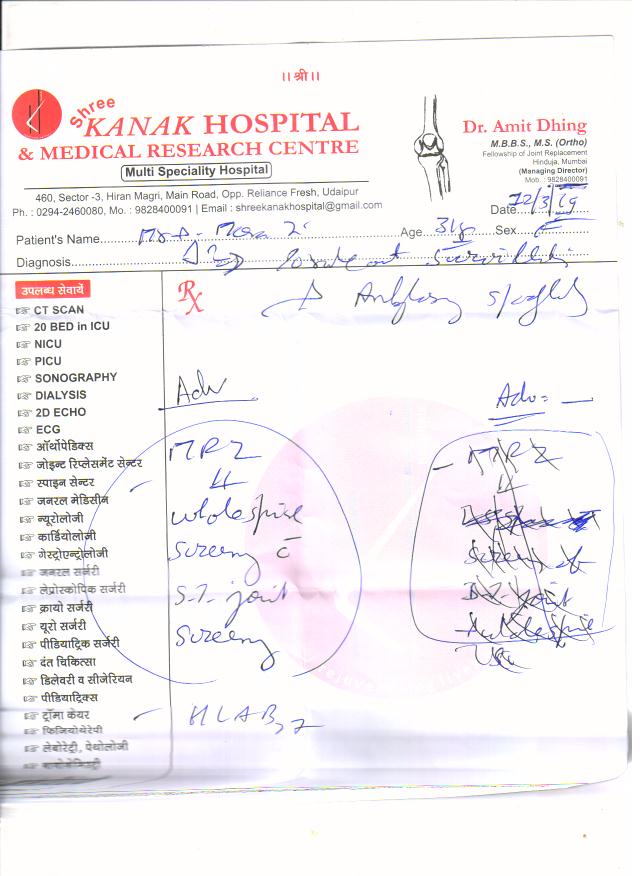 ।। श्री ।।
Shree
KANAK HOSPITAL
& MEDICAL RESEARCH CENTRE
Multi Speciality Hospital
460, Sector -3, Hiran Magri, Main Road, Opp. Reliance Fresh, Udaipur
Ph. : 0294-2460080, Mo. : 9828400091 | Email : shreekanakhospital@gmail.com
Dr. Amit Dhing
M.B.B.S., M.S. (Ortho)
Fellowship of Joint Replacement
Hinduja, Mumbai
(Managing Director)
Mob. : 9828400091
Date 12/3/19
Patient's Name
Age 31y Sex F
Diagnosis
Rx
उपलब्ध सेवायें
CT SCAN
20 BED in ICU
NICU
PICU
SONOGRAPHY
DIALYSIS
2D ECHO
ECG
ऑर्थोपेडिक्स
जोइन्ट रिप्लेसमेंट सेन्टर
स्पाइन सेन्टर
जनरल मेडिसीन
न्यूरोलोजी
कार्डियोलोजी
गेस्ट्रोएन्ट्रोलोजी
जनरल सर्जरी
लेप्रोस्कोपिक सर्जरी
क्रायो सर्जरी
यूरो सर्जरी
पीडियाट्रिक सर्जरी
दंत चिकित्सा
डिलेवरी व सीजेरियन
पीडियाट्रिक्स
ट्रॉमा केयर
फिजियोथेरेपी
लेबोरेट्री, पेथोलोजी
Adv
MRI
wholespine
Screeng c̄
S.I. joint
Screeng
HLAB27
Adv =
MRI